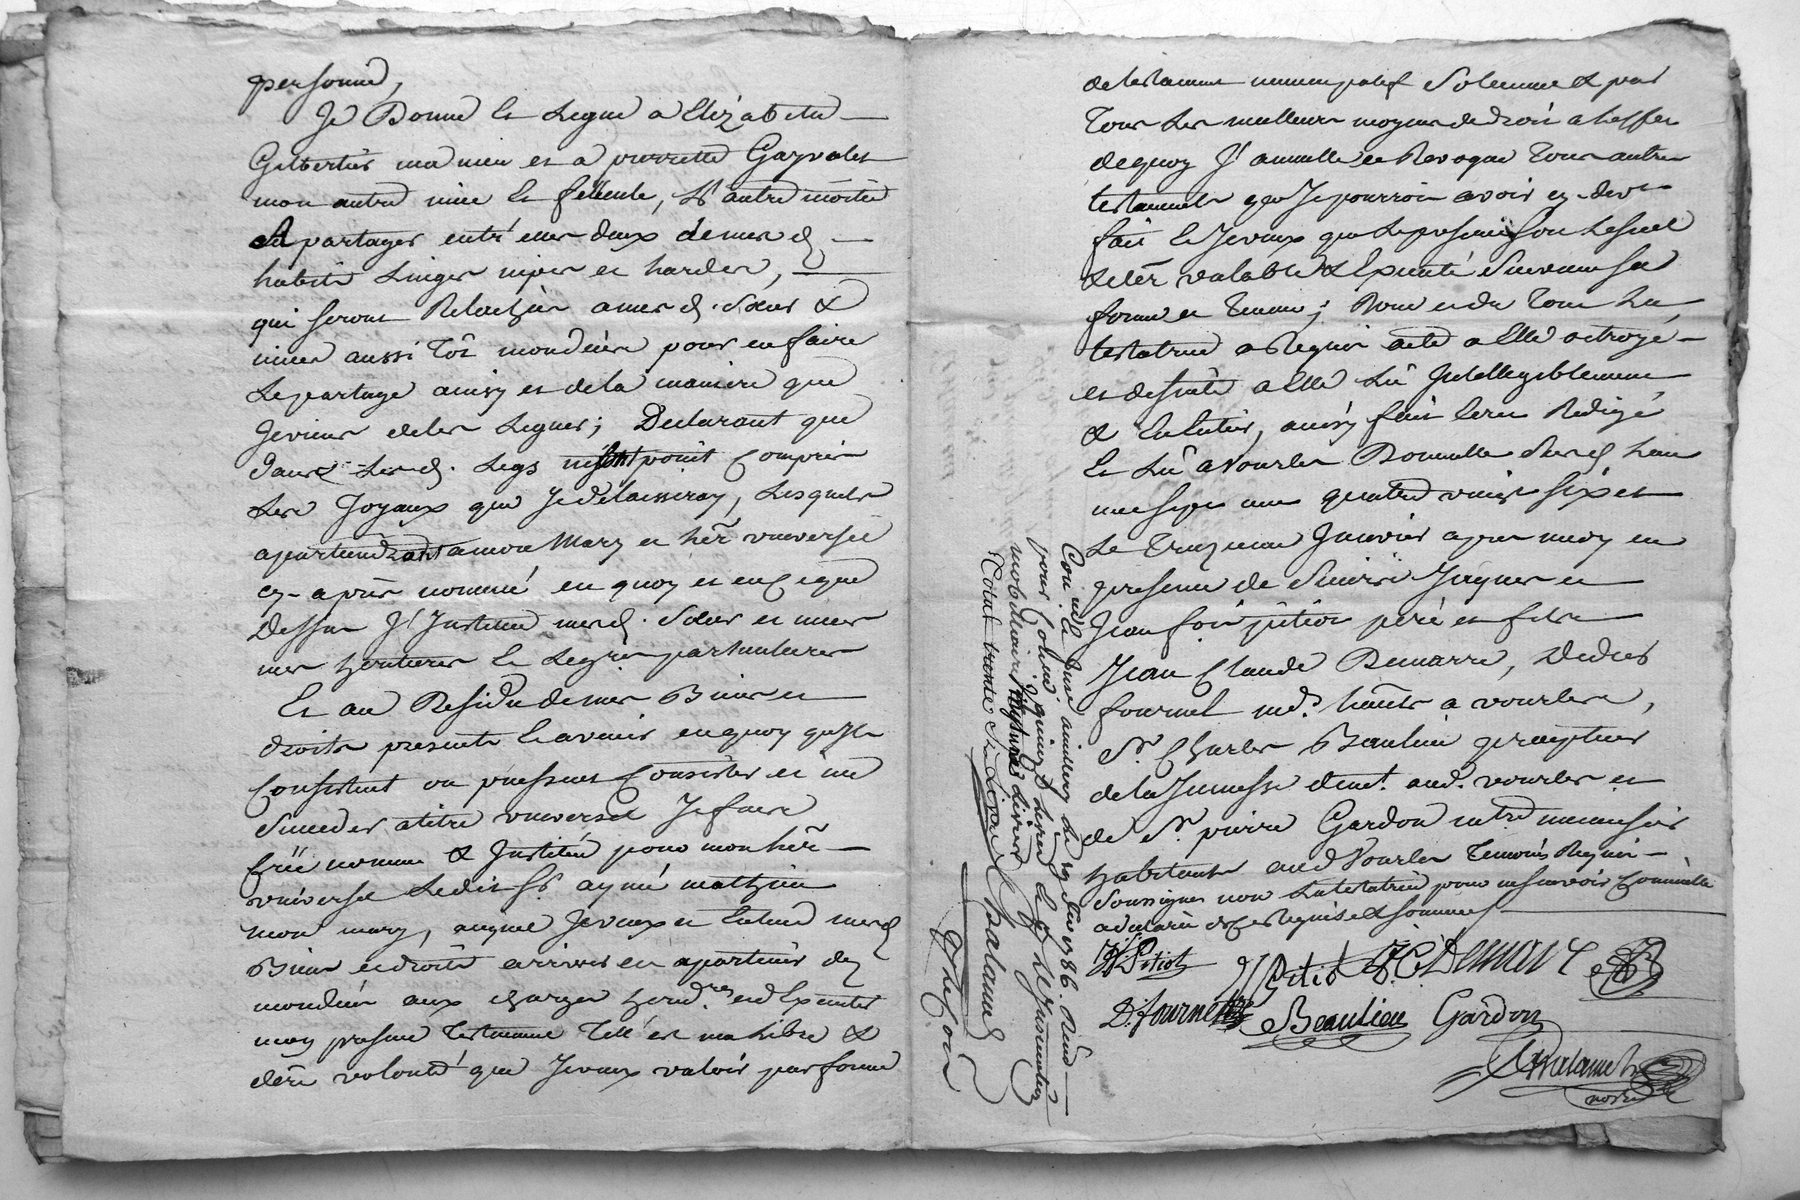 personne,
Je Donne et Legue a Elizabeth
Gilbertier ma niece et a pierrette Gayvalet
mon autre niece et filleule, L'autre moitié
A partager entr'elles deux de mesd.
habits Linges nipes et hardes,
qui seront Relachés a mesd. Soeur &
nieces aussi tôt mon décès pour en faire
Le partage ainsy et de la maniere que
Je viens de les Leguer; Declarant que
dans Lesd. Legs n'i sont point Compris
Les Joyaux que Je délaisseray, Lesquels
apartiendront a mon Mary et hér. universel
cy-après nommé en quoy et en Ce que
Dessus J'Institue mesd. Soeur et nieces
mes heritieres et Legres particulieres
Et au Residu de mes Biens et
droits presents et avenir en quoy qu'ils
Consistent ou puissent Consister et me
Succeder a titre universel Je fais
Créé nomme & Institué pour mon hér.
universel Ledit Sr aymé mathieu
mon mary, auquel Je veux et Entend mesd
Biens et droits arriver et apartenir dez
mon décès aux charges hered.res et d'Executer
mon present Testament Tell'est ma Libre &
dere. volonté que Je veux valoir par forme
de testament nuncupatif Solemnel & par
Tous Les meilleurs moyens de droit a Leffet
de quoy J'annulle et Revoque Tous autres
testaments que Je pourrois avoir cy-devt
fait et Je veux que Le present soit Le seul
& der. valable & Executé Suivant sa
forme et Teneur; Dont et du Tout La
testatrice a Requis acte a Elle octroyé
et desuite a Elle Lû Intelligiblement
& En Entier, ainsy fait Ecrit Redigé
et Lû a Vourles Domicille Susd L'an
mil sept cent quatre vingt six et
Le Treize Janvier après midy en
presence de Sieurs Jaques et
Jean fois pitiot père et fils
Jean Claude Demarre, Didier
fournel md. habts a vourles,
Sr. Charles Beaulieu precepteur
de la Jeunesse demt. aud. vourles et
de Sr. pierre Gardon mtre menuisier
habitants aud Vourles Temoins Requis
Soussignés non La testatrice pour ne Sçavoir Comme Elle
a declaré de Ce Requise et Sommée
JPitiot JfPitiot J.C. Demare
D. fournel Beaulieu Gardon
Chalamel
nore
Con.lé a le 1786. Reçu
pour Controlle quinze Livres
mobiliaire Livres
Total trente Livres Chalamel